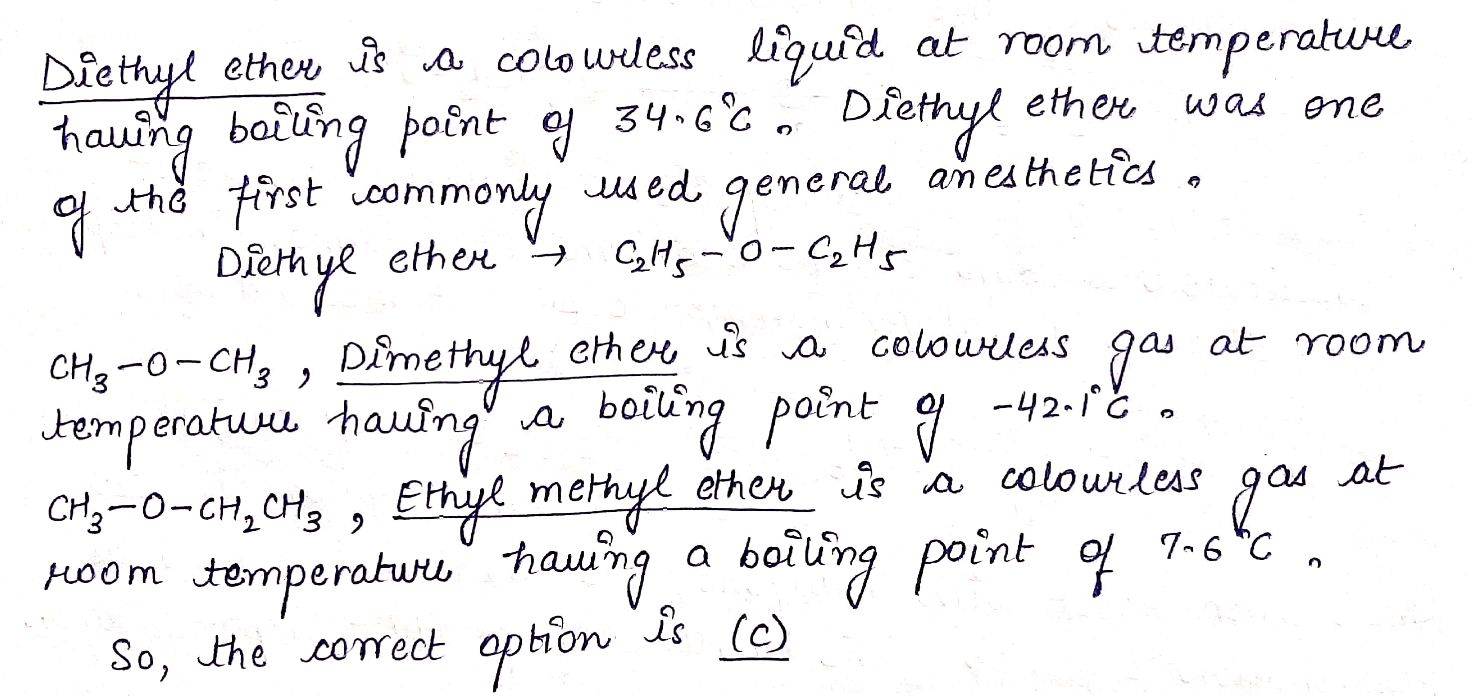 Diethyl ether is a colourless liquid at room temperature
having boiling point of 34.6°C. Diethyl ether was one
of the first commonly used general anesthetics.
Diethyl ether → C₂H₅-O-C₂H₅
CH₃-O-CH₃, Dimethyl ether is a colourless gas at room
temperature having a boiling point of -42.1°C.
CH₃-O-CH₂CH₃, Ethyl methyl ether is a colourless gas at
room temperature having a boiling point of 7.6°C.
So, the correct option is (c)